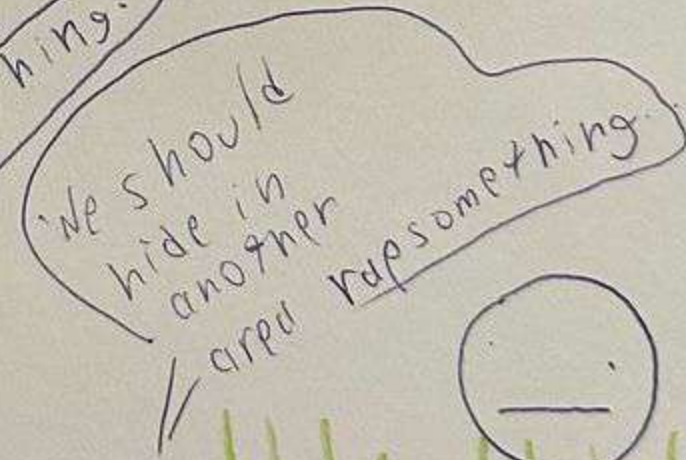 hing.
We should
hide in
another
area rapsomething.